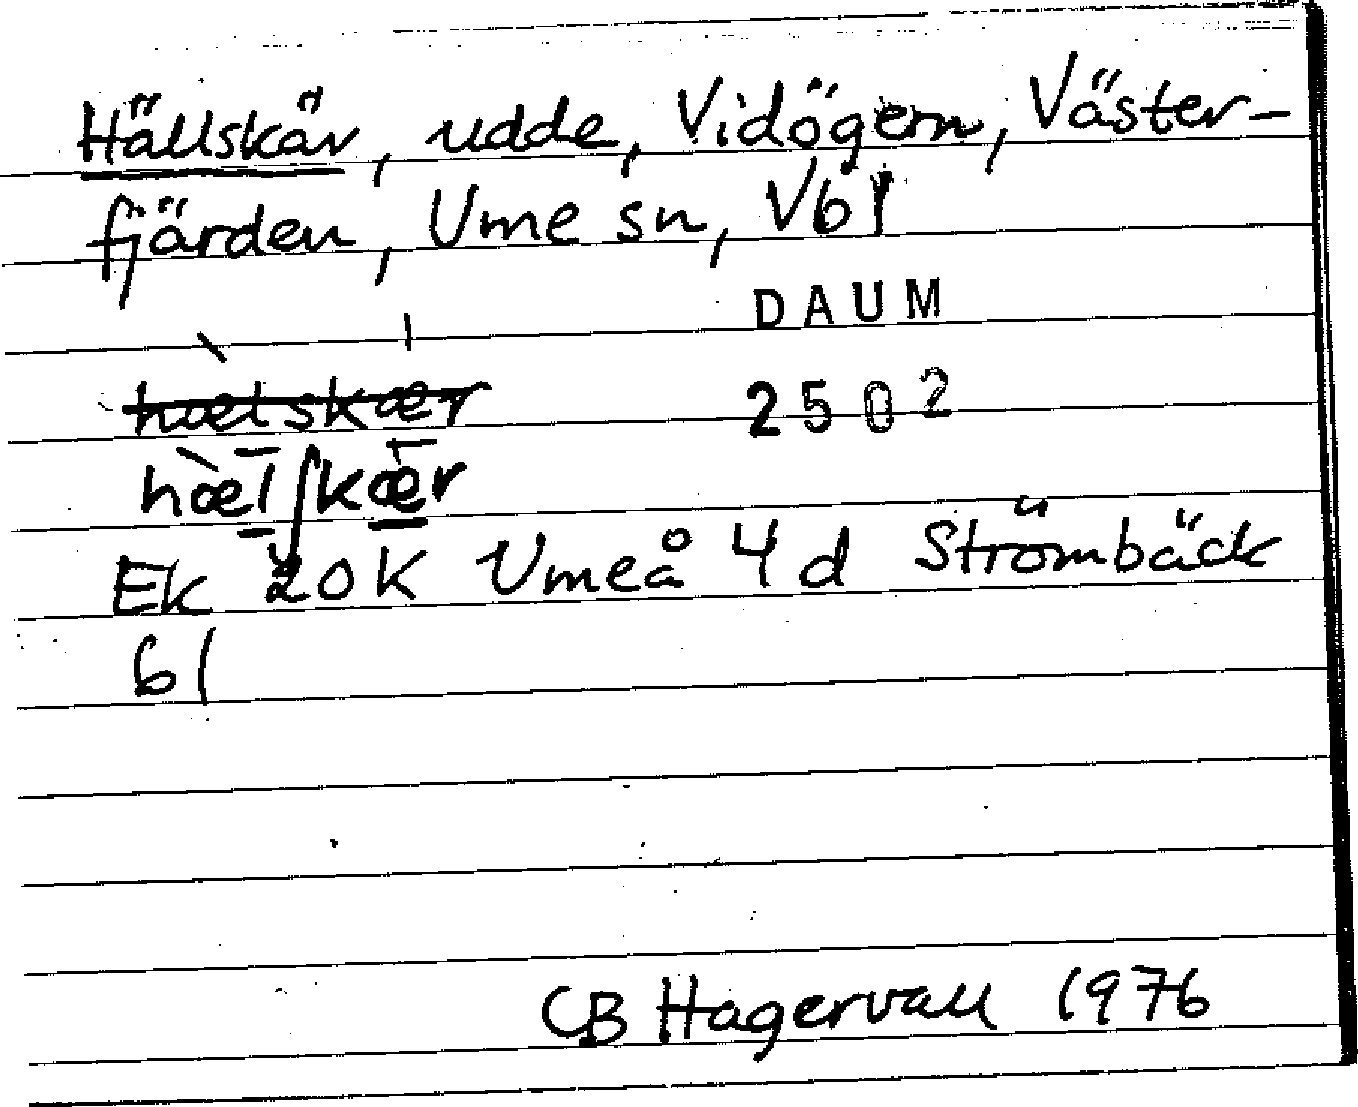 Hällskär, udde, Vidögern, Väster-
fjärden, Ume sn, Vbl
DAUM
hælskær
2502
hæ̀l̄ʃkæ̀r
Ek 20K Umeå 4d Strömbäck
61
CB Hagervall 1976